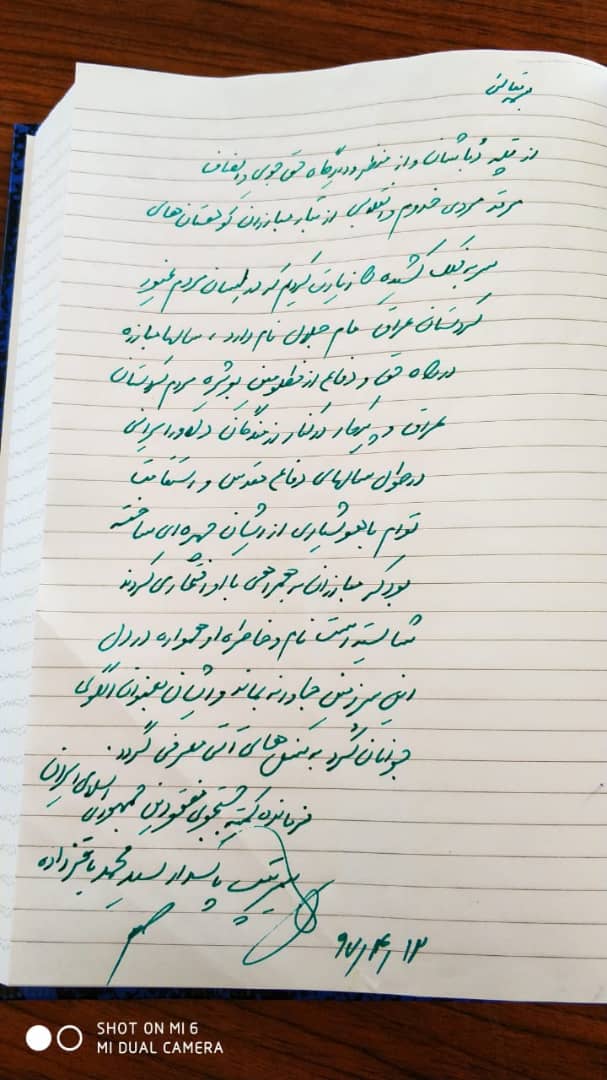 بسمه تعالی
از قله دباشان و از منظر و دیدگاه حق جوی و انصاف
مرقد مردی خدوم و انقلابی از تبار مبارزان کوهستان های
سر به فلک کشیده را زیارت کردیم که در لسان مردم غیور
کردستان عراق مام جلال نام دارد، سالها مبارزه
در راه حق و دفاع از مظلومین بویژه مردم کردستان
عراق و پیکار در کنار رزمندگان دلاور ایرانی
در طول سالهای دفاع مقدس و استقامت
توام با هوشیاری از ایشان چهره ای ساخته
بود که مبارزان به همراهی با او افتخار می کردند
شایسته است نام و خاطره او همواره در دل
این سرزمین جاودانه بماند و ایشان بعنوان الگوی
جوانان کُرد به نسل های آتی معرفی گردد.
فرمانده کمیته جستجوی مفقودین جمهوری اسلامی ایران
سرتیپ پاسدار سید محمد باقرزاده
۹۷/۴/۱۳
SHOT ON MI 6
MI DUAL CAMERA